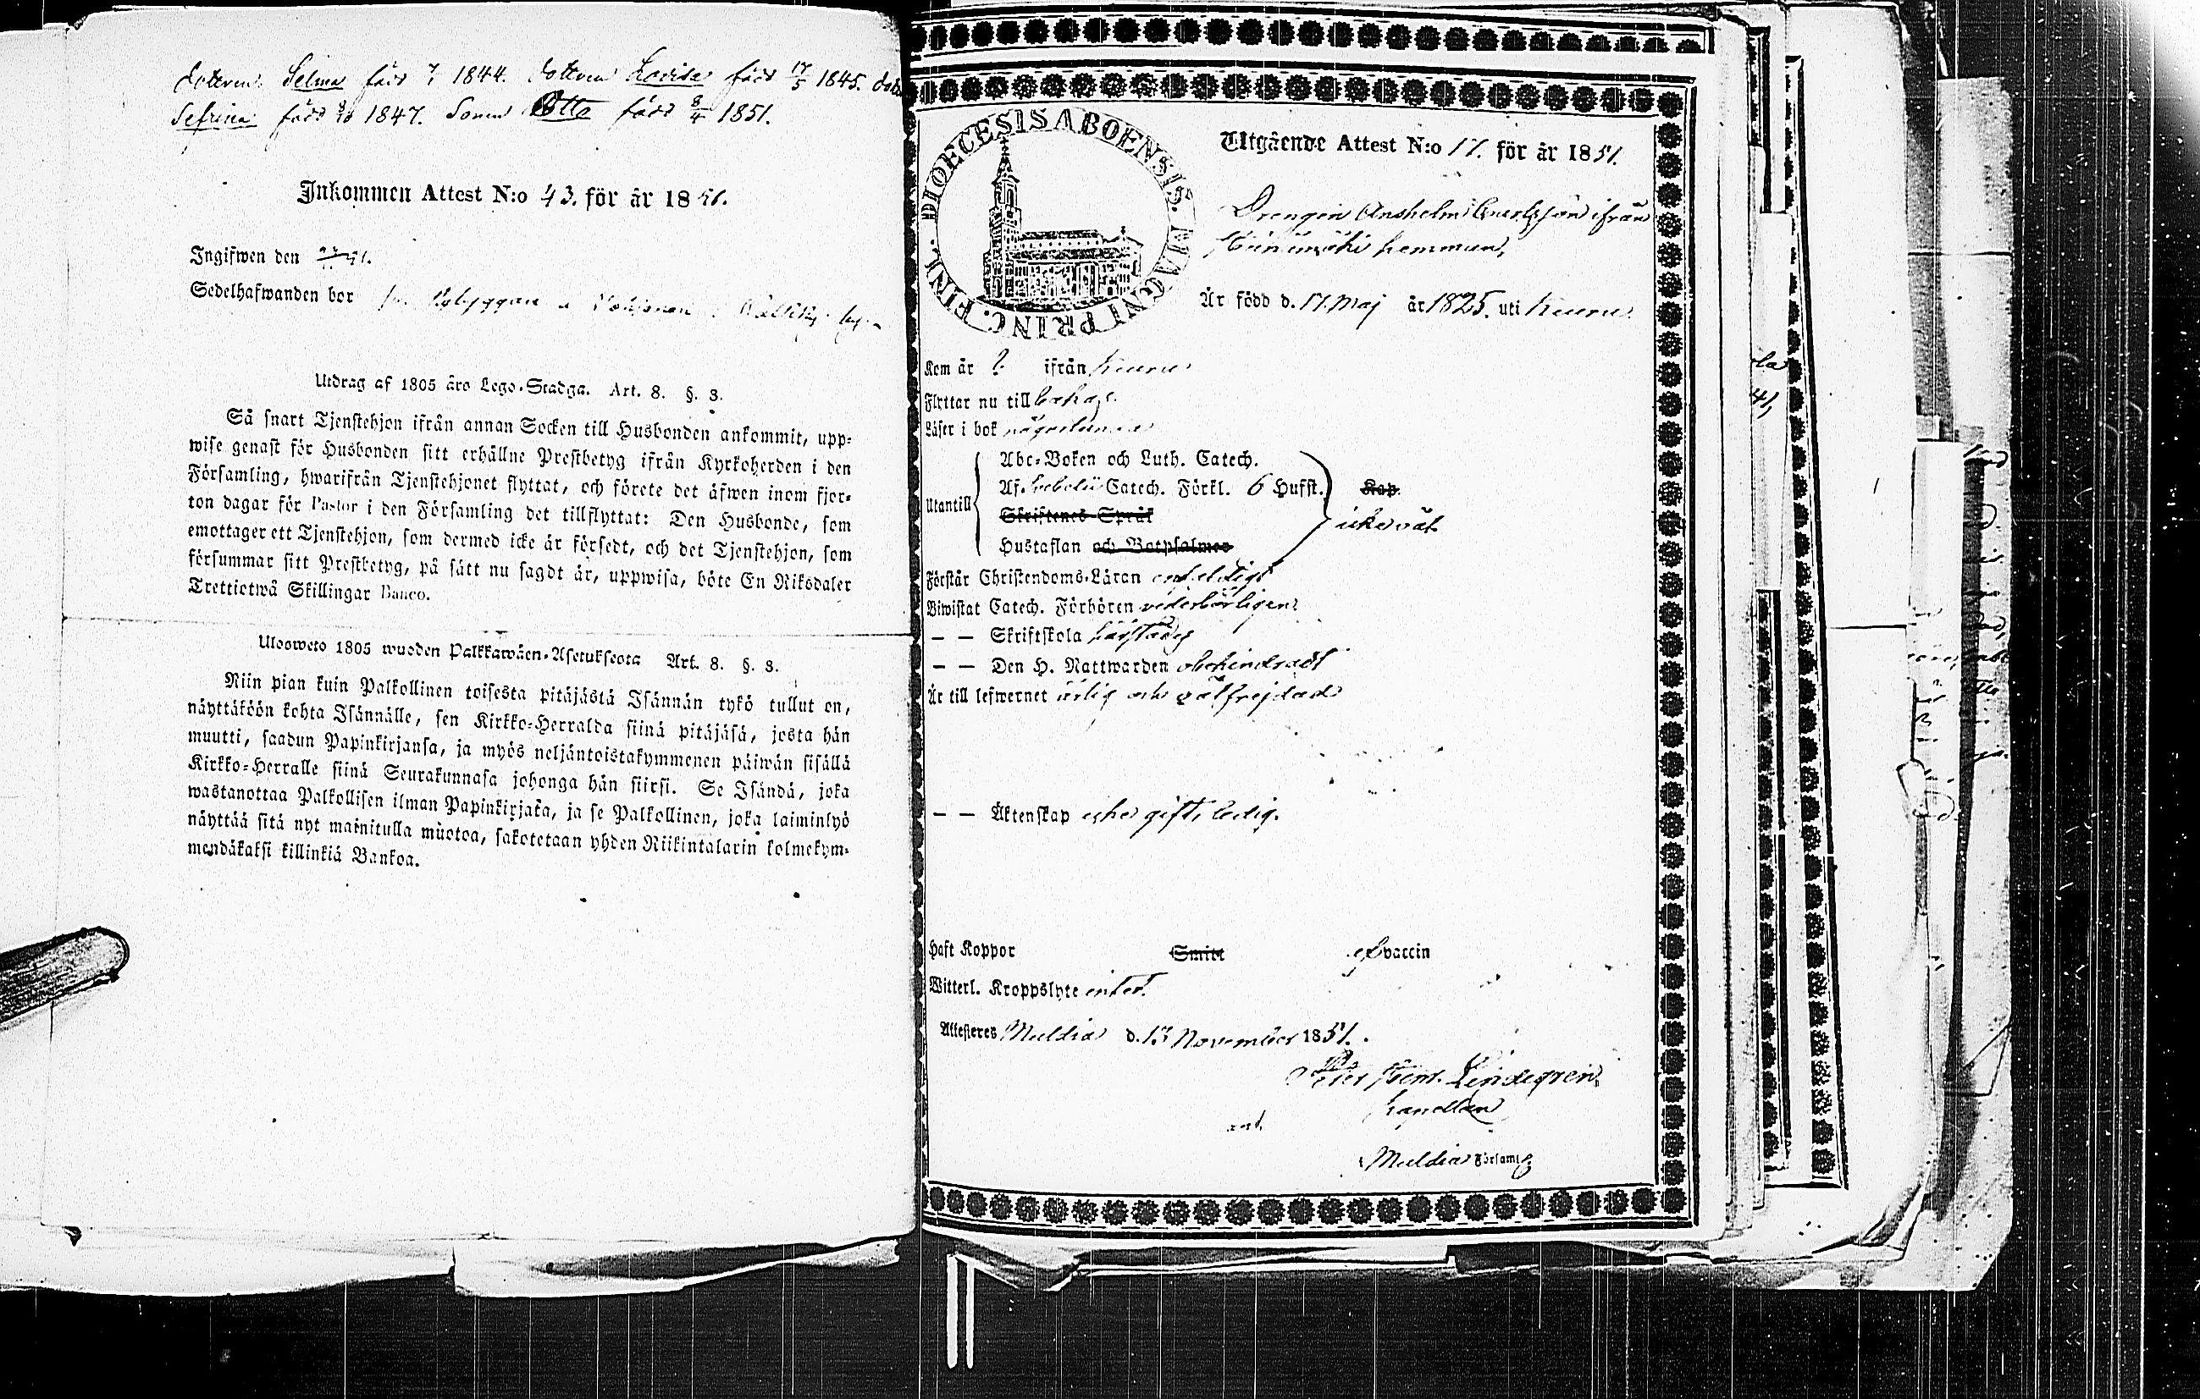 dottren Selma född 1844. dottren Lovisa född 17/5 1845.
Sefrina född 1847. Sonen Otto född 8/4 1851.
Inkommen Attest N:o 43. för år 1851.
Ingifwen den
Sedelhafwanden bor
Utdrag af 1805 års Lego-Stadga. Art. 8. §. 3.
Så snart Tjenstehjon ifrån annan Socken till Husbonden ankommit, upp-
wise genast för Husbonden sitt erhållne Prestbetyg ifrån Kyrkoherden i den
Församling, hwarifrån Tjenstehjonet flyttat, och förete det äfwen inom fjor-
ton dagar för Pastor i den Församling det tillflyttat: Den Husbonde, som
emottager ett Tjenstehjon, som dermed icke är försedt, och det Tjenstehjon, som
försummar sitt Prestbetyg, på sätt nu sagdt är, uppwisa, böte En Riksdaler
Trettiotwå Skillingar Banco.
Ulosweto 1805 wuoden Palkkawäen-Asetuksesta Art. 8. §. 3.
Niin pian kuin Palkollinen toisesta pitäjästä Isännän tykö tullut on,
näyttäköön kohta Isännälle, sen Kirkko-Herralda siinä pitäjäsä, josta hän
muutti, saadun Papinkirjansa, ja myös neljäntoistakymmenen päiwän sisällä
Kirkko-Herralle siinä Seurakunnasa johonga hän siirsi. Se Isändä, joka
wastanottaa Palkollisen ilman Papinkirjata, ja se Palkollinen, joka laiminlyö
näyttää sitä nyt mainitulla muotoa, sakotetaan yhden Riikintalarin kolmekym-
mendäkaksi killinkiä Bankoa.
DIOECESIS ABOENSIS. MAGNI PRINC. FINL.
Utgående Attest N:o 17. för år 1851.
Drengen Anshelm ifrån
hemman,
Är född d. 17. Maj år 1825. uti Keuru.
Kom år ? ifrån Keuru
Flyttar nu till
Läser i bok någorlunda
Abc-Boken och Luth. Catech.
Af. Sebelii Catech. Förkl. 6 Hufst. Kap.
Utantill
Skriftenes Språk
icke väl
Hustaflan och Botpsalmer
Förstår Christendoms-Läran enfeldigt
Biwistat Catech. Förhören vederbörligen
— — Skriftskola härstädes
— — Den H. Nattwarden obehindradt
Är till lefwernet ärlig och välfrejdad
— — Äktenskap icke gift, ledig.
Haft Koppor Smitt ex vaccin
Witterl. Kroppslyte intet.
Attesteras Muldia d. 13 November 1851.
Lindegren
Capellan
Muldia Församl.